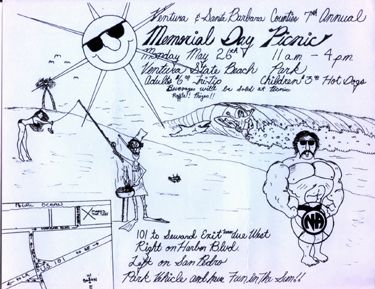 Ventura & Santa Barbara Counties 7th Annual
Memorial Day Picnic
Monday May 26th 11am - 4pm
Ventura State Beach Park
Adults 6.00 Tri-Tip Children 3.00 Hot Dogs
Beverages will be sold at picnic
Raffle! Prizes!!
NA
101 to Seward Exit due West
Right on Harbor Blvd
Left on San Pedro
Park Vehicle and have Fun in The Sun!!